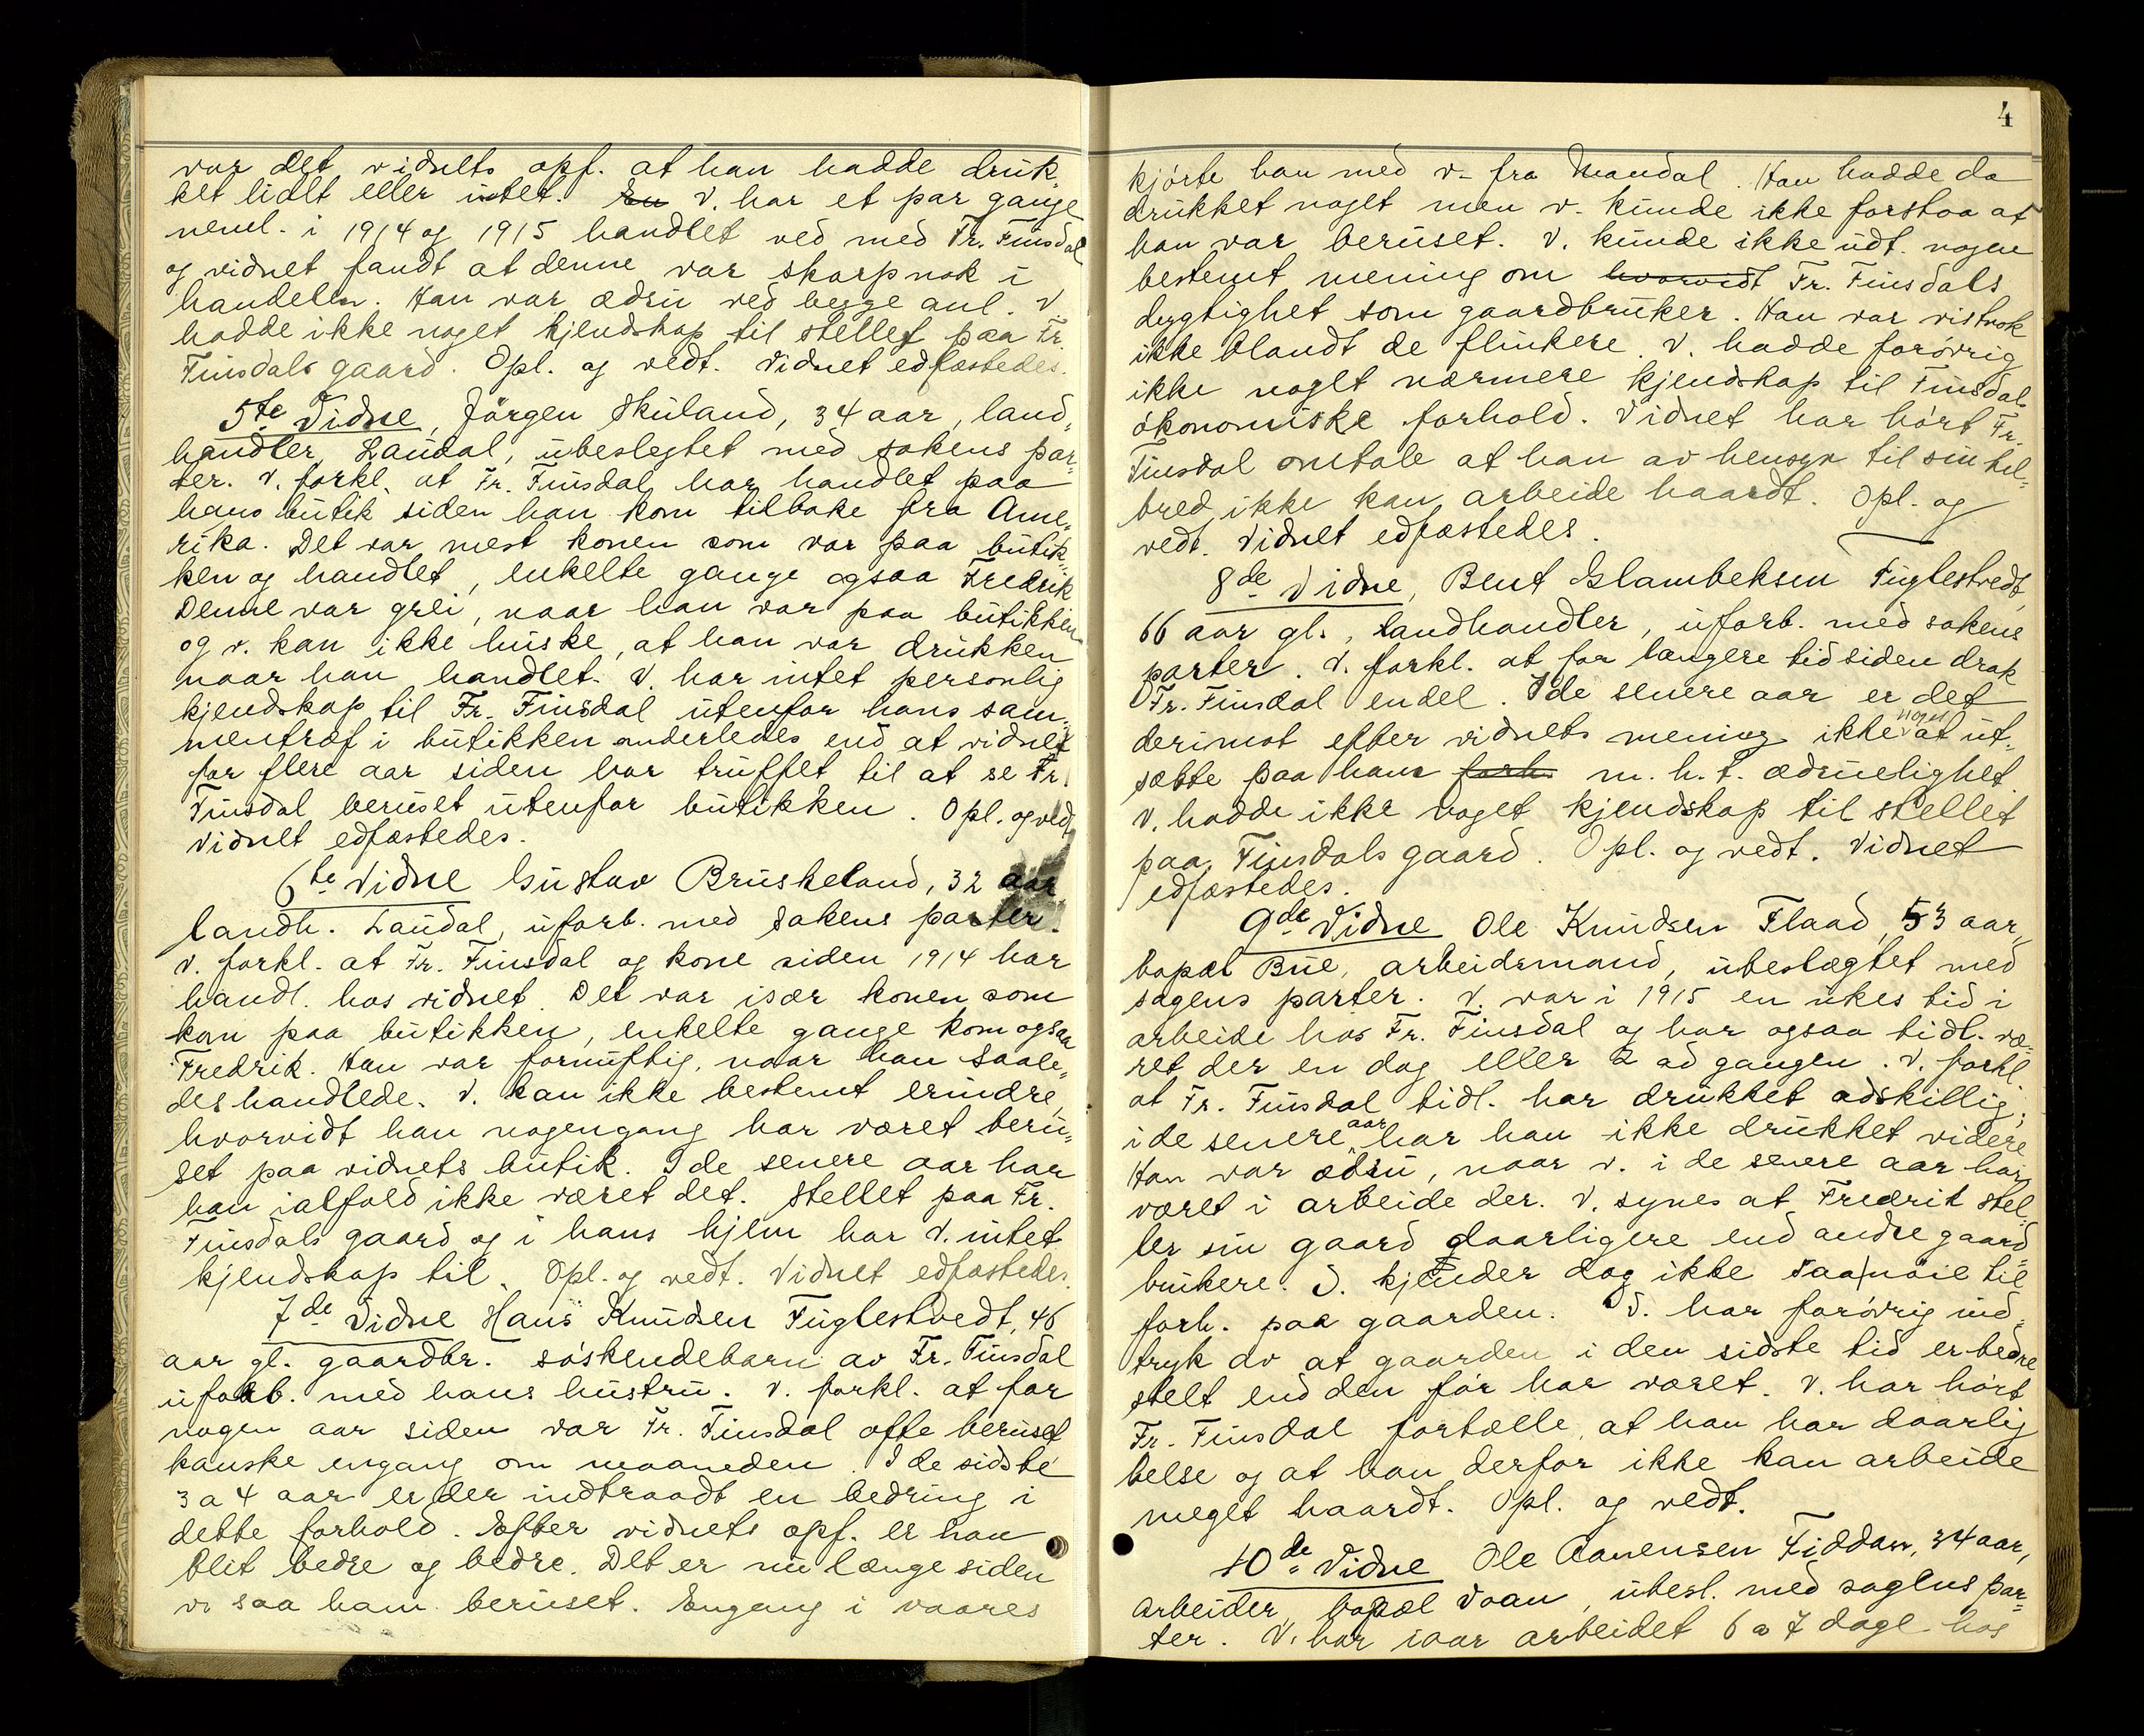 var det vidnets opf. at han hadde druk-
ket lidt eller intet. En V. har et par gange
neml. i 1914 og 1915 handlet ved med Fr. Finsdal
og vidnet fandt at denne var skarp nok i
handelen. Han var ædru ved begge anl. V
hadde ikke noget kjendskap til stellet paa Fr.
Finsdals gaard. Opl. og vedt. Vidnet edfæstedes.
5te Vidne, Jörgen Skuland, 34 aar, land,
handler, Laudal, ubeslegtet med sakens par-
ter. V. forkl. at Fr. Finsdal har handlet paa
hans butik siden han kom tilbake fra Ame,
rika. Det var mest konen som var paa butik-
ken og handlet, enkelte gange ogsaa Fredrik
Denne var grei, naar han var paa butikken
og v. kan ikke huske, at han var drukken
naar han handlet. V. har intet personlig
kjendskap til Fr. Finsdal utenfor hans sam-
mentræf i butikken anderledes end at vidnet
for flere aar siden har truffet til at se Fr.
Finsdal beruset utenfor butikken. Opl. og vedt.
Vidnet edfæstedes.
6te Vidne Gustav Bruskeland, 32 aar
landh. Laudal, uforb. med sakens parter.
V. forkl. at Fr. Finsdal og kone siden 1914 har
handl. hos vidnet. Det var især konen som
kom paa butikken, enkelte gange kom ogsaa
Fredrik. Han var fornuftig, naar han saale,
des handlede. V. kan ikke bestemt erindre,
hvorvidt han nogengang har været beru-
set paa vidnets butik. I de senere aar har
han ialfald ikke været det. Stellet paa Fr.
Finsdals gaard og i hans hjem har V. intet
kjendskap til. Opl. og vedt. Vidnet edfæstedes.
7de Vidne Hans Knudsen Fuglestvedt, 46
aar gl. gaardbr. söskendebarn av Fr. Finsdal
uforb. med hans hustru. V. forkl. at for
nogen aar siden var Fr. Finsdal ofte beruset
kanske engang om maaneden. I de sidste
3 a 4 aar er der indtraadt en bedring i
dette forhold. Efter vidnets opf. er han
blit bedre og bedre. Det er nu længe siden
v. saa ham beruset. Engang i vaares
4
kjörte han med v. fra Mandal. Han hadde da
drukket noget men v. kunde ikke forstaa at
han var beruset. V. kunde ikke udt. nogen
bestemt mening om hvorvidt Fr. Finsdals
dygtighet som gaardbruker. Han var vistnok
ikke blandt de flinkere. V. hadde forövrig
ikke noget nærmere kjendskap til Finsdals
ökonomiske forhold. Vidnet har hört Fr.
Finsdal omtale at han av hensyn til sin hel-
bred ikke kan arbeide haardt. Opl. og
vedt. Vidnet edfæstedes.
8de Vidne, Bent Glambeksen Fuglestvedt,
66 aar gl., landhandler, uforb. med sakens
parter. V. forkl. at for længere tid siden drak
Fr. Finsdal endel. I de senere aar er det
derimot efter vidnets mening ikke noget at ut-
sætte paa ham forh. m. h. t. ædruelighet
V. hadde ikke noget kjendskap til stellet
paa Finsdals gaard. Opl. og vedt. Vidnet
edfæstedes.
9de Vidne Ole Knudsen Flaad, 53 aar,
bopæl Bue, arbeidsmand, ubeslægtet med
sagens parter. V. var i 1915 en ukes tid i
arbeide hos Fr. Finsdal og har ogsaa tidl. væ-
ret der en dag eller 2 ad gangen. V. forkl.
at Fr. Finsdal tidl. har drukket adskillig;
i de senere aar har han ikke drukket videre
Han var ædru, naar v. i de senere aar har
været i arbeide der. V. synes at Fredrik stel-
ler sin gaard daarligere end andre gaard-
brukere. V. kjender dog ikke saa nöie til
forh. paa gaarden. V. har forövrig ind-
tryk av at gaarden i den sidste tid er bedre
stelt end den för har været. V. har hört
Fr. Finsdal fortælle, at han har daarlig
helse og at han derfor ikke kan arbeide
meget haardt. Opl. og vedt.
10de Vidne Ole Aanensen Fiddan, 34 aar,
arbeider, bopæl Voan, ubesl. med sagens par-
ter. V. har iaar arbeidet 6 a 7 dage hos